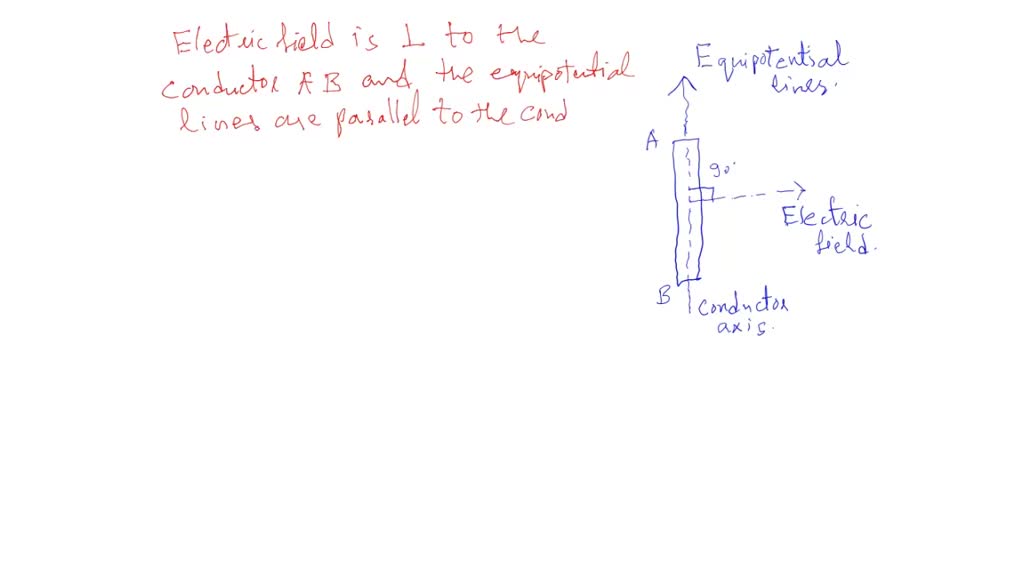 Electric field is ⊥ to the
conductor AB and the equipotential
lines are parallel to the cond
Equipotential
lines.
A
90°
Electric
field.
B
conductor
axis.